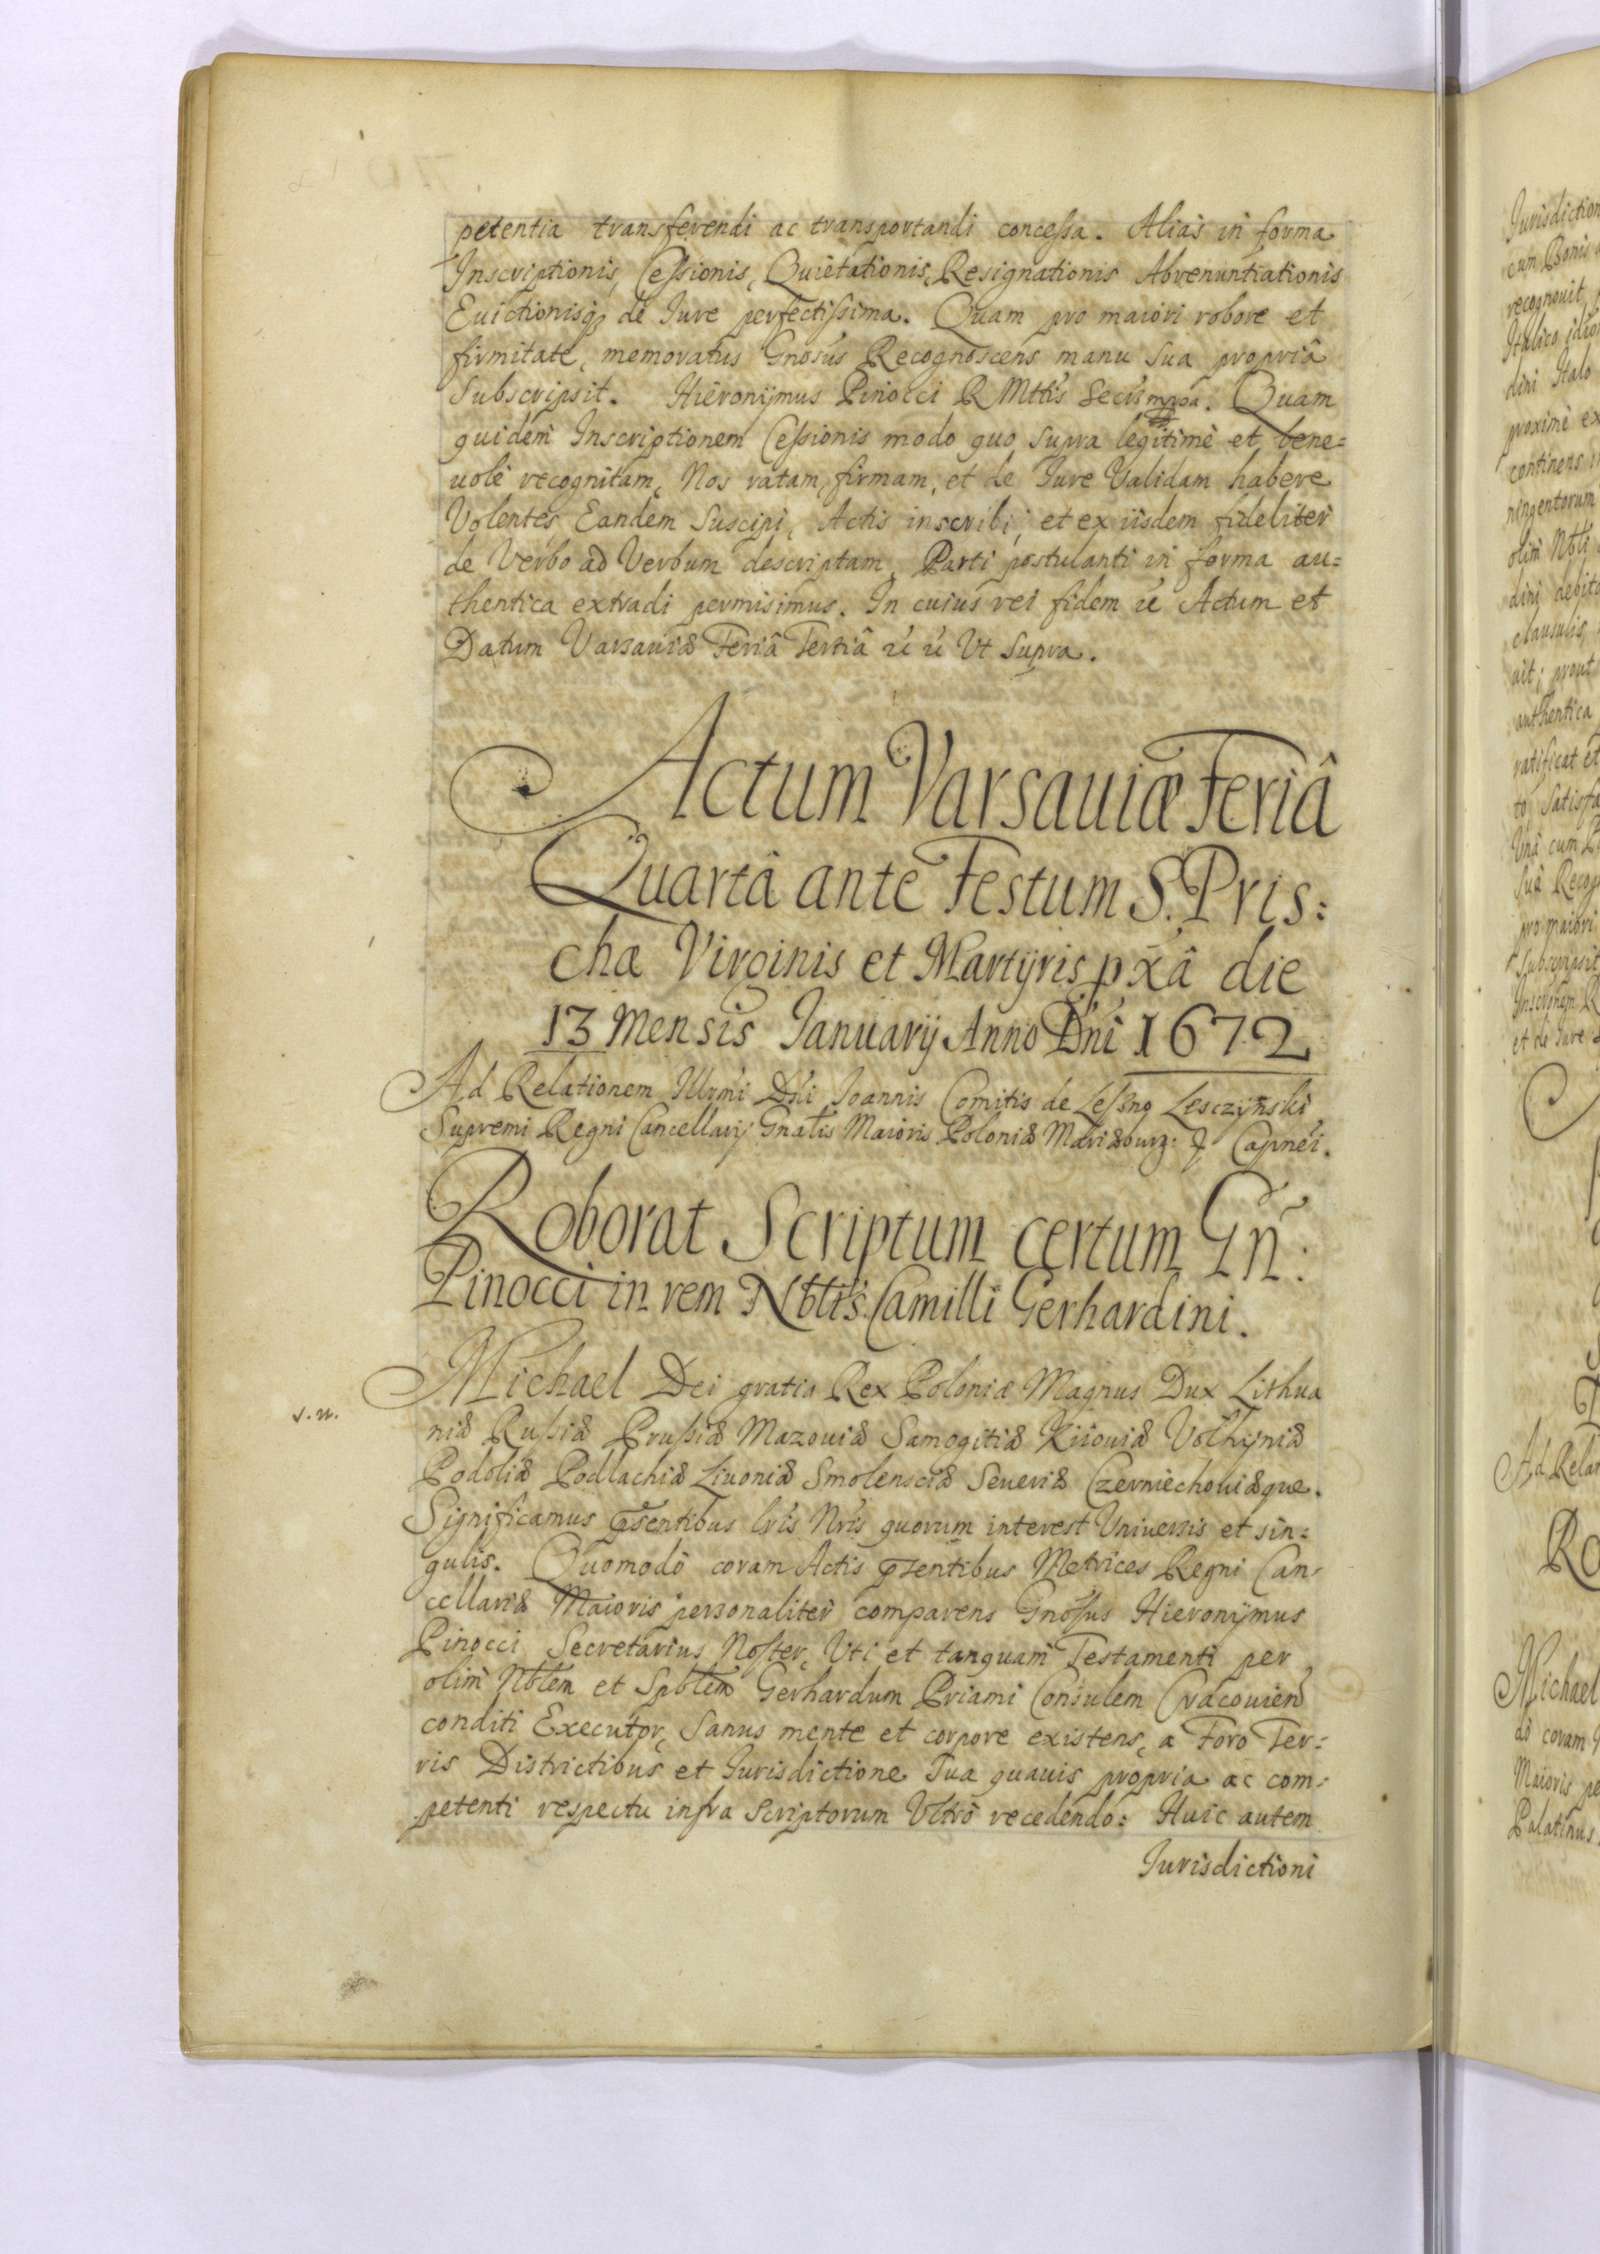 petentia transferendi ac transportandi concessa. Alias in forma
Inscriptionis, Cessionis, Quietationis, Resignationis Abrenuntiationis
Euictionisq3 de Iure perfectissima. Quam pro maiori robore et
firmitate, memoratus Gnosus Recognoscens manu sua propriâ
subscripsit. Hieronÿmus Pinocci R Mttis Secrs mppa. Quam
quidem Inscriptionem Cessionis modo quo supra legitimè et bene=
uolè recognitam, Nos ratam, firmam, et de Iure Validam habere
Volentes, Eandem suscipi, Actis inscribi, et ex iisdem fideliter
de Verbo ad Verbum descriptam, Parti postulanti in forma au=
thentica extradi permisimus. In cuius rei fidem Actum et
Datum Varsauiæ Feriâ Tertiâ Vt supra.
Actum Varsauiæ Feriâ
Quartâ ante Festum S. Pris:
chæ Virginis et Martÿris pxâ die
13 Mensis Ianuarij Anno Dni 1672
Ad Relationem Illrmi Dni Ioannis Comitis de Lesno Lesczÿnski
Supremi Regni Cancellarij Gnalis Maioris Poloniæ Mariæburg: Capnei.
Roborat Scriptum certum Gn:
Pinocci in rem Nbtis Camilli Gerhardini.
Michael Dei gratia Rex Poloniæ Magnus Dux Lithua
niæ Russiæ Prussiæ Mazouiæ Samogitiæ Kiiouiæ Volhÿniæ
Podoliæ Podlachiæ Liuoniæ Smolensciæ Seueriæ Czerniechouiæque.
s. n.
Significamus pntibus lris Nris quorum interest Vniuersis et sin=
gulis. Quomodo coram Actis pntibus Metrices Regni Can=
cellariæ Maioris personaliter comparens Gnosus Hieronÿmus
Pinocci Secretarius Noster, Vti et tanquam Testamenti per
olim Nbtem et Spbtem Gerhardum Priami Consulem Cracouien
conditi Executor, Sanus mente et corpore existens, a Foro Ter=
ris Districtibus et Iurisdictione sua quauis propria ac com=
petenti respectu infra scriptorum Vltrò recedendo: Huic autem
Iurisdictioni